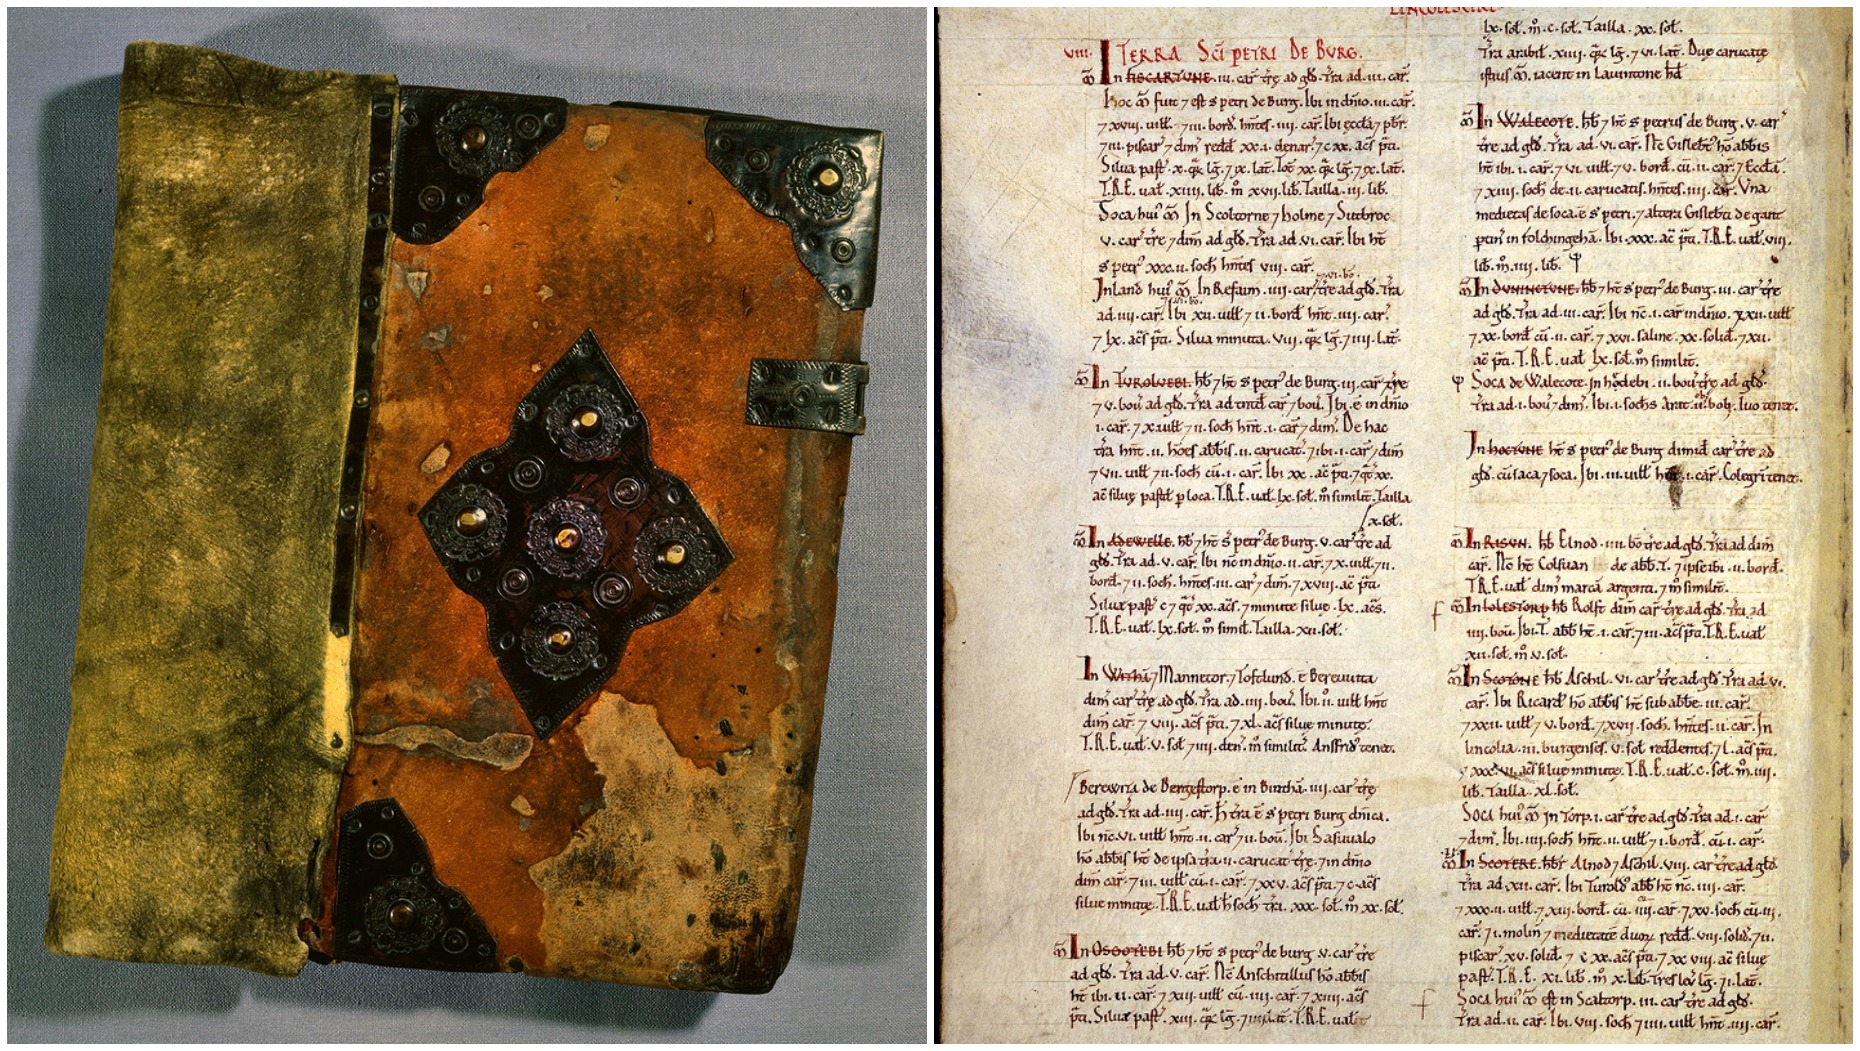 LINCOLESCIRE
VIII. TERRA SC̄I PETRI DE BURG.
In FISCARTUNE .iii. car̄ tr̄e ad gld. Tr̄a ad .iii. car̄.
Hoc m̄ fuit 7 est s petri de Burg. Ibi in dn̄io .iii. car̄.
7 xviii. uill̄. 7 iii. bord̄. hn̄tes .iiii. car̄. Ibi eccl̄a 7 pbr̄.
7 iii. piscar̄ 7 dim̄ redd̄ xx.i. denar̄. 7 c.xx. ac̄s p̄ti.
Silua past̄ .x. qr̄ lḡ. 7 ix. lat̄. Tot̄ xx. qr̄ lḡ. 7 ix. lat̄.
T.R.E. ual̄ .xiiii. lib̄. m̄ xvii. lib̄. Tailla .iii. lib̄.
Soca hui' m̄ In Scoltorne 7 holme 7 Sutbroc
v. car̄ tr̄e 7 dim̄ ad gld̄. Tr̄a ad .vi. car̄. Ibi ht̄
s petr' xxx.ii. soch̄ hn̄tes viii. car̄.
Inland hui' m̄. In Refaim .iiii. car̄ tr̄e ad gld̄. Tr̄a
ad .iiii. car̄. Ibi xii. uill̄ 7 ii. bord̄ hn̄t .iiii. car̄.
7 lx. ac̄s p̄ti. Silua minuta. viii. qr̄ lḡ. 7 iiii. lat̄.
In TUROLUEBI. hb̄ 7 ht̄ s petr' de Burg. iii. car̄ tr̄e
7 v. bou' ad gld̄. Tr̄a ad totid̄ car̄ 7 bou'. Ibi .ē in dn̄io
i. car̄. 7 x. uill̄ 7 ii. soch̄ hn̄t .i. car̄ 7 dim̄. De hac
tr̄a hn̄t .ii. hōes abb̄is .ii. carucat̄. 7 ibi .i. car̄ 7 dim̄
7 vii. uill̄ 7 ii. soch̄ cū .i. car̄. Ibi xx. ac̄ p̄ti. 7 q̄t' xx.
ac̄ siluę pastil̄ p loca. T.R.E. ual̄ lx. sol̄. m̄ simil̄it. Tailla
x. sol̄.
In ADEWELLE. hb̄ 7 ht̄ s petr' de Burg. v. car̄ tr̄e ad
gld̄. Tr̄a ad .v. car̄. Ibi nc̄ in dn̄io .ii. car̄. 7 x. uill̄. 7 ii.
bord̄. 7 ii. soch̄. hn̄tes .iii. car̄ 7 dim̄. 7 xviii. ac̄ p̄ti.
Siluæ past̄ c 7 q̄t' xx. ac̄s. 7 minute siluę .lx. ac̄s.
T.R.E. ual̄ .lx. sol̄. m̄ simil̄. Tailla .xii. sol̄.
In WITHĀ 7 Mannetor. 7 Toftlund. ē Bereuuita
dim̄ car̄ tr̄e ad gld̄. Tr̄a ad .iiii. bou'. Ibi .ii. uill̄ hn̄t
dim̄ car̄. 7 viii. ac̄s p̄ti. 7 xl. ac̄s siluę minutę.
T.R.E. ual̄ .v. sol̄ 7 iiii. den̄. m̄ simil̄it' Ansfrid' tenet.
Berewita de Bergestorp. ē in Bitthā .iiii. car̄ tr̄e
ad gld̄. Tr̄a ad .iiii. car̄. H̄ tr̄a ē s petri Burg dn̄ica.
Ibi nc̄ .vi. uill̄ hn̄t .ii. car̄ 7 ii. bou'. Ibi Sasuualo
hō abb̄is ht̄ de ipsa tr̄a .ii. carucat̄ tr̄ę. 7 in dn̄io
dim̄ car̄. 7 iii. uill̄ cū .i. car̄. 7 xxv. ac̄s p̄ti. 7 c. ac̄s
siluę minutę. T.R.E. ual̄ xxx. sol̄. m̄ xx. sol̄.
In OSGOTEBI hb̄ 7 ht̄ s petr' de burg v. car̄ tr̄e
ad gld̄. Tr̄a ad .v. car̄. Nc̄ Anschitillus hō abb̄is
ht̄ ibi .ii. car̄. 7 xiii uill̄ cū .iiii. car̄. 7 xiiii. ac̄s
p̄ti. Siluæ past̄. xiii. qr̄ lḡ. T.R.E. ual̄
lx. sol̄. m̄ .c. sol̄. Tailla .xx. sol̄.
Tr̄a arabil̄. xiiii. qr̄ lḡ. 7 vi. lat̄. Duę carucatę
istius m̄. iacent in Lauintone hd̄
In WALECOTE. hb̄ 7 ht̄ s petrus de Burg. v. car̄
tr̄e ad gld̄. Tr̄a ad .vi. car̄. Nc̄ Gislebt' hō abb̄is
ht̄ ibi .i. car̄. 7 vi. uill̄ 7 v. bord̄. cū .ii. car̄. 7 Eccl̄a.
7 xiiii. soch̄ de .ii. carucatis. hn̄tes .iiii. car̄. Una
medietas de soca .ē s petri. 7 altera Gislebti de gant
ptin' in folchingehā. Ibi .xxx. ac̄ p̄ti. T.R.E. ual̄ .viii.
lib̄. m̄ .iiii. lib̄.
In DUNINCTUNE. hb̄ 7 ht̄ s petr' de Burg. iii. car̄ tr̄e
ad gld̄. Tr̄a ad .ii. car̄. Ibi nc̄ .i. car̄ in dn̄io. xxii. uill̄
7 xx. bord̄ cū .ii. car̄. 7 xvi. saline .xx. solid̄. 7 xii.
ac̄ p̄ti. T.R.E. ual̄ lx. sol̄. m̄ simil̄it̄.
Soca de Walecote. In hodebi .ii. bou' tr̄e ad gld̄.
Tr̄a ad .i. bou' 7 dim̄. Ibi .i. sochs arat .ii. bob3. Iuo tenet.
In HOCTUNE ht̄ s petr' de Burg dimid̄ car̄ tr̄e ad
gld̄. cū saca 7 soca. Ibi .iii. uill̄ hn̄t .i. car̄. Colegrī tenet.
In RISUN. hb̄ Elnod .iiii. bō tr̄e ad gld̄. Tr̄a ad dim̄
car̄. Nc̄ ht̄ Colsuan de abb̄. T. 7 ipse ibi .ii. bord̄.
T.R.E. ual̄ dim' marcā argenti. 7 m̄ simil̄it̄.
In LOLESTORP hb̄ Rolft dim̄ car̄ tr̄e ad gld̄. Tr̄a ad
iiii. bou'. Ibi .T. abb̄ ht̄ .i. car̄. 7 iii. ac̄s p̄ti. T.R.E. ual̄
xii. sol̄. m̄ .v. sol̄.
In SCOTONE hb̄ Aschil. vi. car̄ tr̄e ad gld̄. Tr̄a ad .vi.
car̄. Ibi Ricard' hō abb̄is ht̄ sub abb̄e .iii. car̄.
7 xxii. uill̄ 7 v. bord̄. 7 xvii. soch̄. hn̄tes .ii. car̄. In
lincolia .iii. burgenses. v. sol̄ reddentes. 7 l. ac̄s p̄ti.
7 xxx.vii. ac̄s siluę minutę. T.R.E. ual̄ .c. sol̄. m̄ .iiii.
lib̄. Tailla .xl. sol̄.
Soca hui' m̄ in Torp .i. car̄ tr̄e ad gld̄. Tr̄a ad .i. car̄
7 dim̄. Ibi .iiii. soch̄ hn̄t .ii. uill̄ 7 i. bord̄. cū .i. car̄.
In SCOTERE. hb̄r Alnod 7 Aschil. viii. car̄ tr̄e ad gld̄.
Tr̄a ad .xii. car̄. Ibi Turold' abb̄ ht̄ nc̄ .iiii. car̄.
7 xxx.ii. uill̄. 7 xiii. bord̄. cū .iiii. car̄. 7 xv. soch̄ cū .iii.
car̄. 7 i. molin' 7 medietatē duoꝝ redd̄ .viii. solid̄. 7 ii.
piscar̄ .xv. solid̄. 7 c.xx. ac̄s p̄ti. 7 xxviii. ac̄ siluę
past̄. T.R.E. xi. lib̄. m̄ x. lib̄. Tres leu' lḡ. 7 i. lat̄.
Soca hui' m̄ est in Scaltorp. iii. car̄ tr̄e ad gld̄.
Tr̄a ad .ii. car̄. Ibi .viii. soch̄ 7 iiii. uill̄ hn̄t .iiii. car̄.